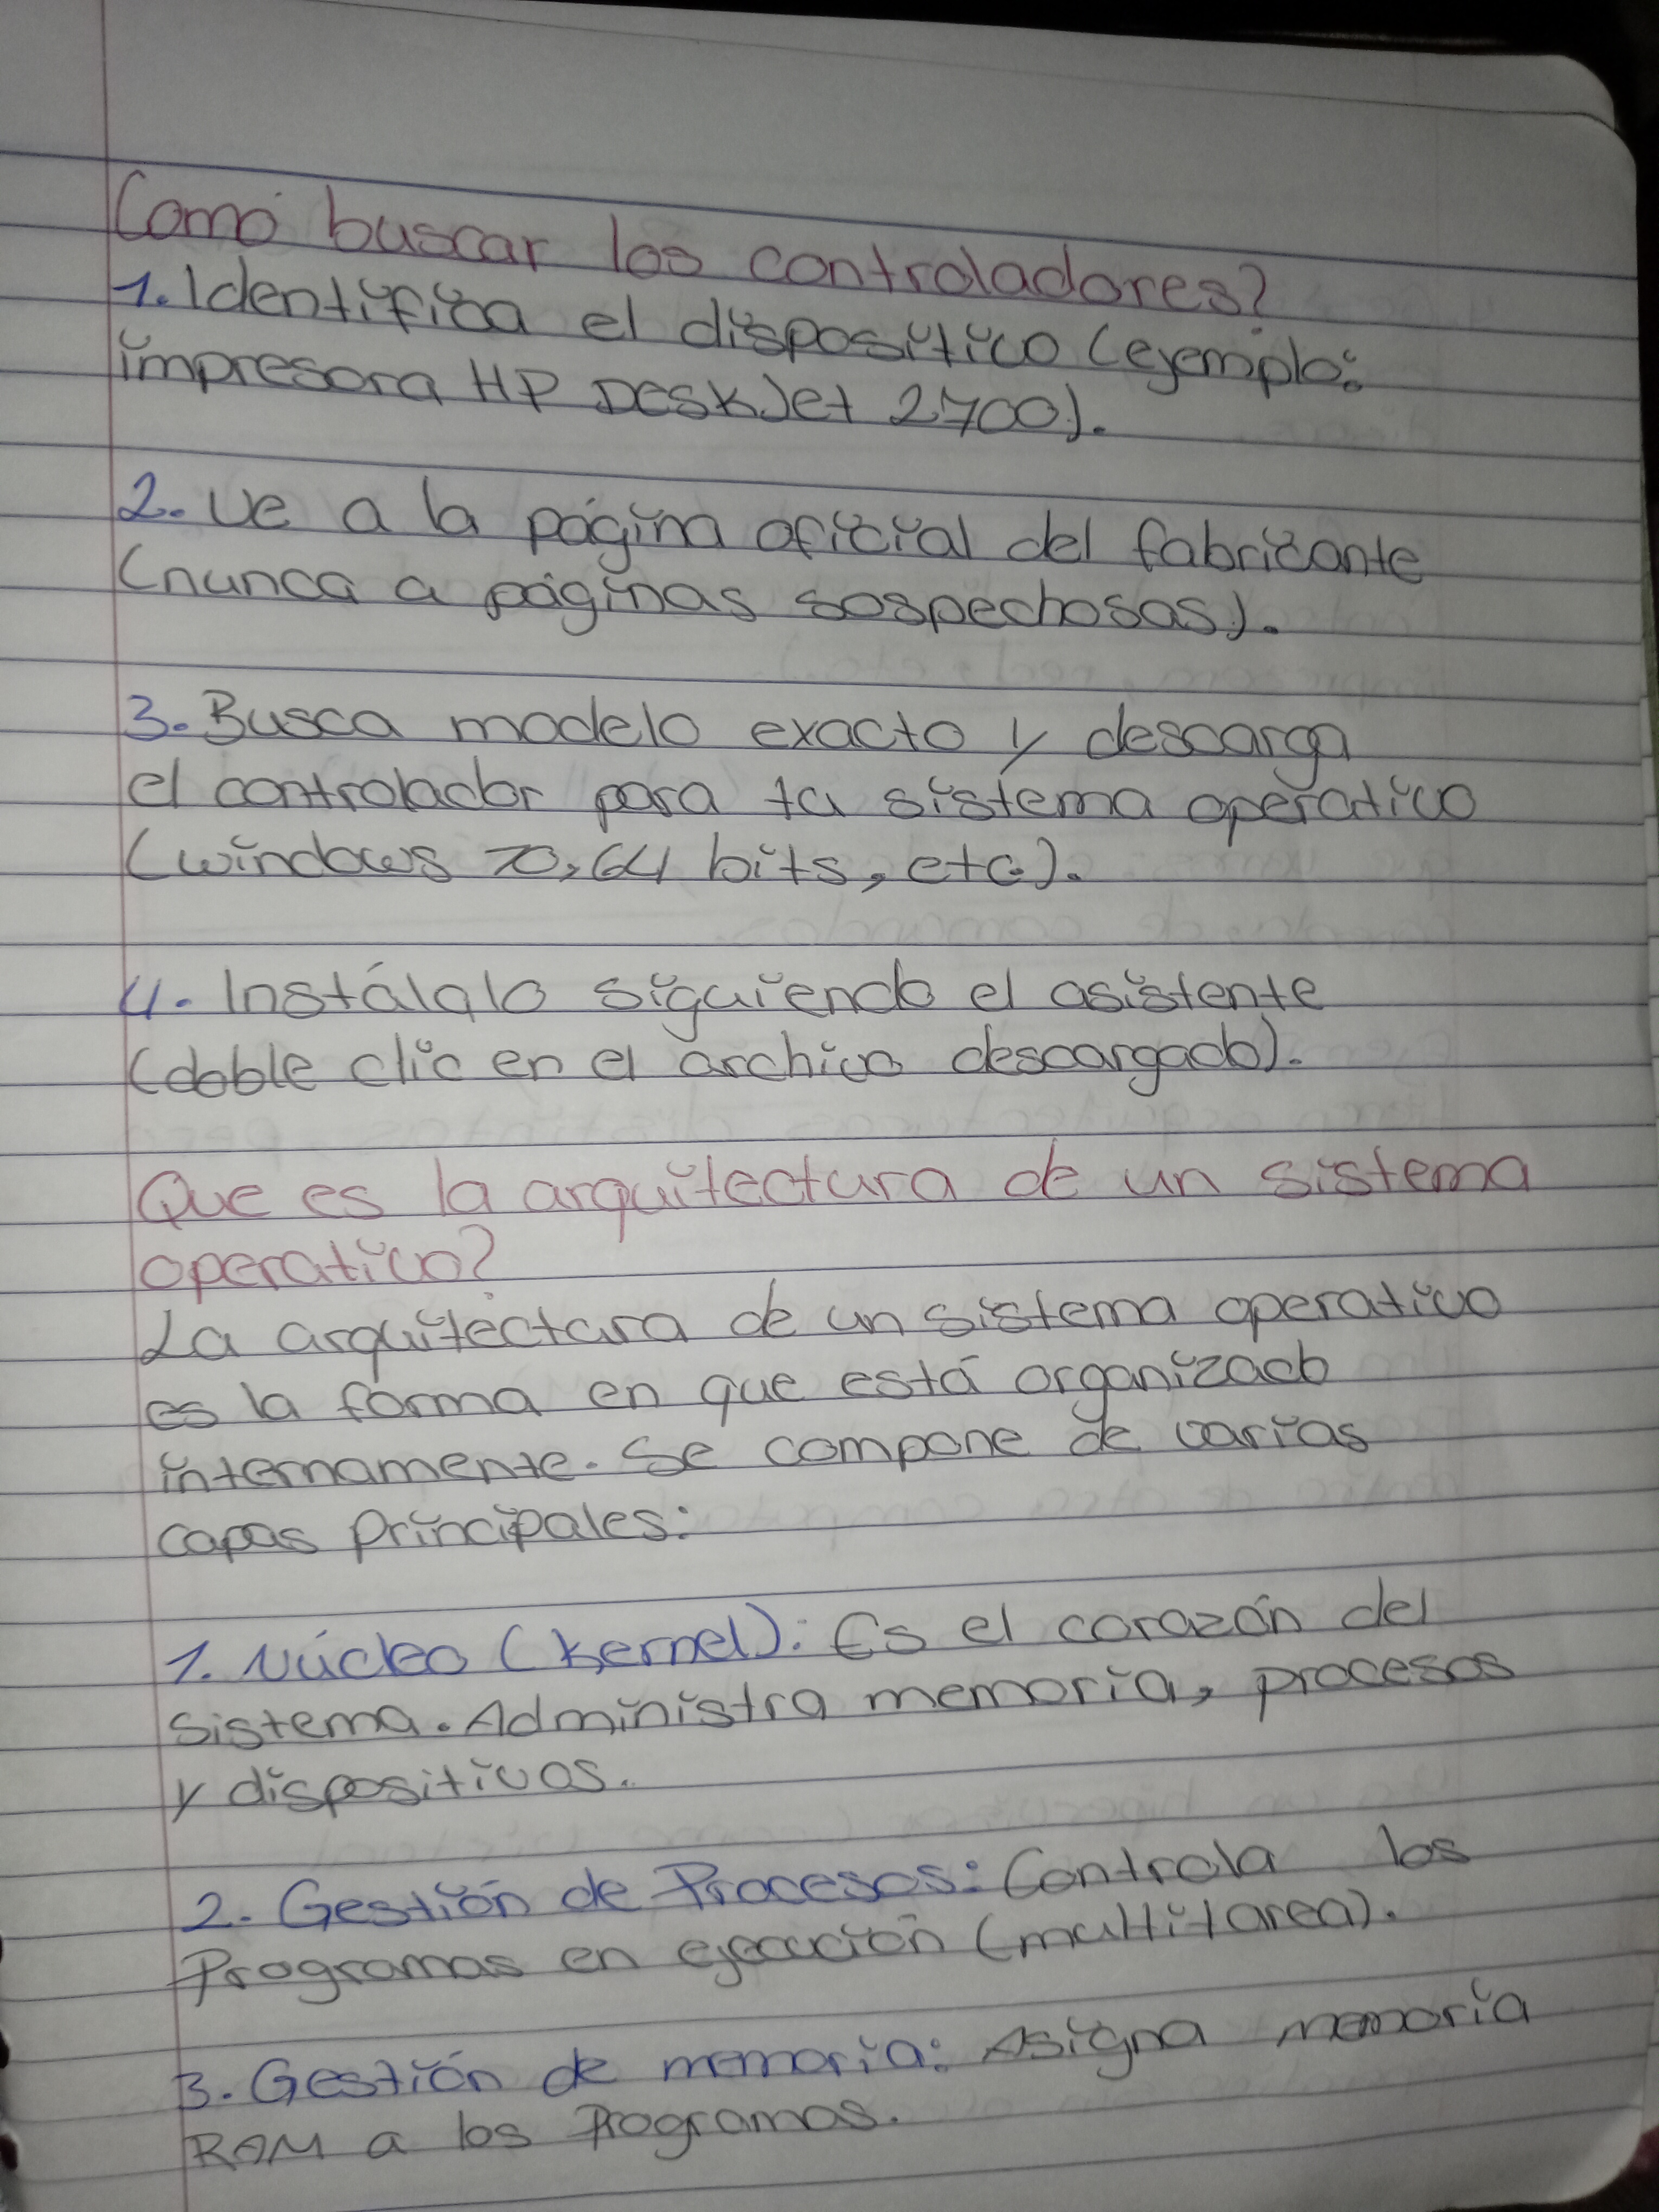 Como buscar los controladores?
1. Identifica el dispositivo (ejemplo:
impresora HP DeskJet 2700).
2. Ve a la página oficial del fabricante
(nunca a páginas sospechosas).
3. Busca modelo exacto y descarga
el controlador para tu sistema operativo
(windows 10, 64 bits, etc).
4. Instálalo siguiendo el asistente
(doble clic en el archivo descargado).
Que es la arquitectura de un sistema
operativo?
La arquitectura de un sistema operativo
es la forma en que está organizado
internamente. Se compone de varias
capas principales:
1. Núcleo (kernel): Es el corazón del
sistema. Administra memoria, procesos
y dispositivos.
2. Gestión de Procesos: Controla los
Programas en ejecución (multitarea).
3. Gestión de memoria: Asigna memoria
RAM a los Programas.